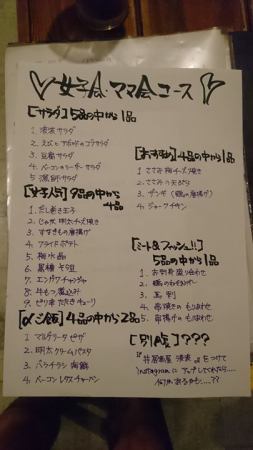 女子会・ママ会コース
[サラダ] 5品の中から1品
1. 漬波サラダ
2. えびとアボカドのコブサラダ
3. 豆腐サラダ
4. ベーコンのシーザーサラダ
5. 漁師サラダ
[女子人気] 9品の中から4品
1. だし巻き玉子
2. じゃが明太チーズ焼き
3. すなぎもの唐揚げ
4. フライドポテト
5. 梅水晶
6. 黒糖
7. エンガワチャンジャ
8. 牛もつ煮込み
9. ピリ辛たたききゅうり
[〆ご飯] 4品の中から2品
1. マルゲリータピザ
2. 明太クリームパスタ
3. バラチラシ
4. ベーコンレタスチャーハン
4品の中から1品
1. ささみ梅チーズ焼き
2. ささみの天ぷら
3. ザンギ(鶏の唐揚げ)
4. ジャークチキン
[ミート&フィッシュ!!]
5品の中から1品
1. お刺身盛り合わせ
2. 鶏の
3. 馬刺
4. 串焼きのもりあわせ
5. 串揚げのもりあわせ
[別腹]???
#居酒屋 をつけて
instagramにアップしてくれたら....
何かあるかも....??